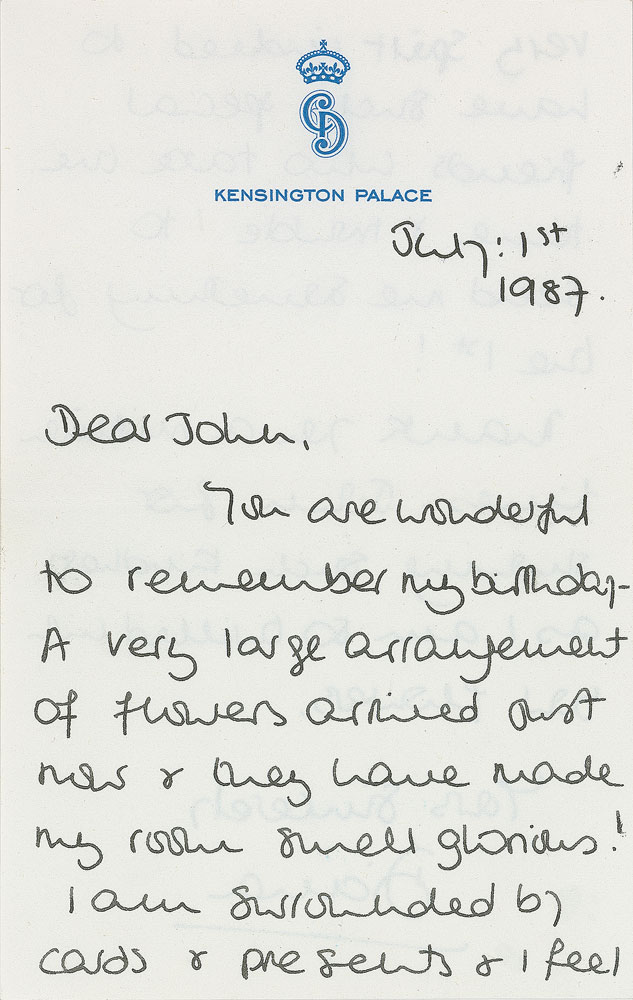 KENSINGTON PALACE
July: 1st
1987.
Dear John,
You are wonderful
to remember my birthday -
A very large arrangement
of flowers arrived just
now & they have made
my room smell glorious!
I am surrounded by
cards & presents & I feel